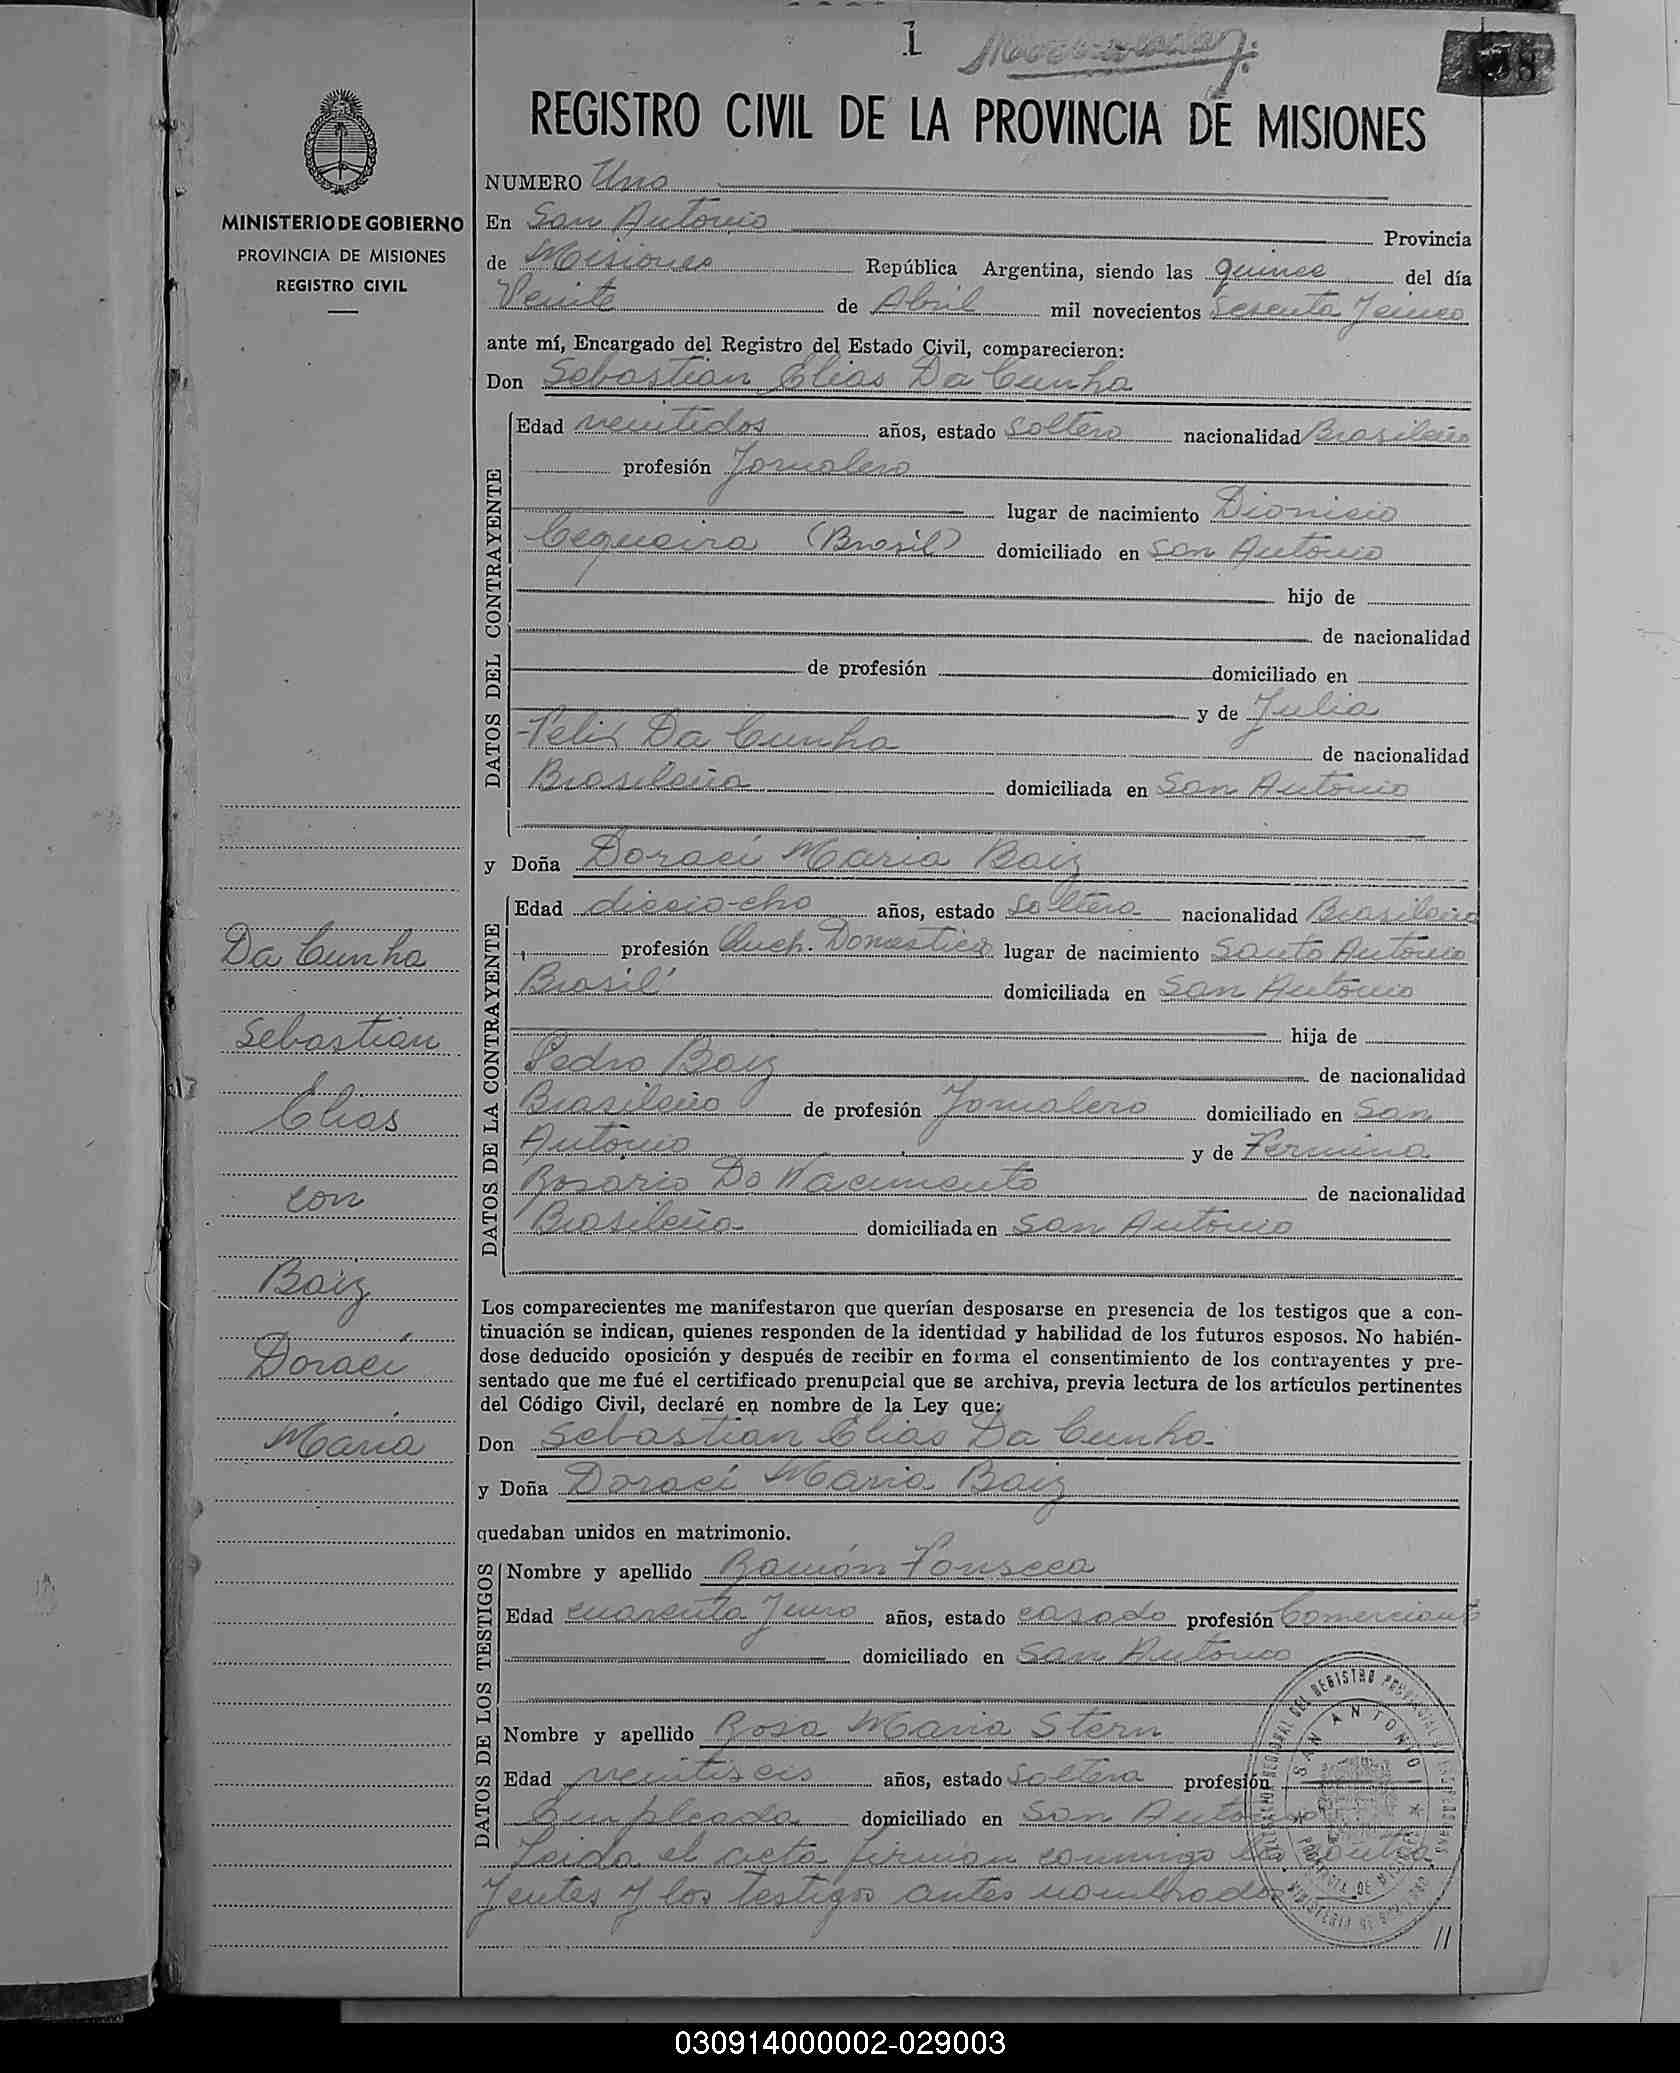 1
REGISTRO CIVIL DE LA PROVINCIA DE MISIONES
MINISTERIO DE GOBIERNO
PROVINCIA DE MISIONES
REGISTRO CIVIL
NUMERO Uno
En San Antonio Provincia
de Misiones República Argentina, siendo las quince del día
Veinte de Abril mil novecientos Sesenta y cinco
ante mí, Encargado del Registro del Estado Civil, comparecieron:
Don Sebastian Elias Da Cunha
DATOS DEL CONTRAYENTE
Edad veintidos años, estado Soltero nacionalidad Brasileño
profesión Jornalero
lugar de nacimiento Dionicio
Cequeira (Brasil) domiciliado en San Antonio
hijo de
de nacionalidad
de profesión domiciliado en
y de Julia
Felix Da Cunha de nacionalidad
Brasileña domiciliada en San Antonio
y Doña Doraci Maria Baiz
DATOS DE LA CONTRAYENTE
Edad diecio-cho años, estado Soltera nacionalidad Brasileña
profesión Queh. Domesticos lugar de nacimiento Santo Antonio
Brasil domiciliada en San Antonio
hija de
Pedro Baiz de nacionalidad
Brasileño de profesión Jornalero domiciliado en San
Antonio y de Fermina
Rosario Do Nacimento de nacionalidad
Brasileña domiciliada en San Antonio
Da Cunha
Sebastian
Elias
con
Baiz
Doraci
Maria
Los comparecientes me manifestaron que querían desposarse en presencia de los testigos que a con-
tinuación se indican, quienes responden de la identidad y habilidad de los futuros esposos. No habién-
dose deducido oposición y después de recibir en forma el consentimiento de los contrayentes y pre-
sentado que me fué el certificado prenupcial que se archiva, previa lectura de los artículos pertinentes
del Código Civil, declaré en nombre de la Ley que:
Don Sebastian Elias Da Cunha
y Doña Doraci Maria Baiz
quedaban unidos en matrimonio.
DATOS DE LOS TESTIGOS
Nombre y apellido Ramón Fonseca
Edad cuarenta y uno años, estado casado profesión Comerciante
domiciliado en San Antonio
Nombre y apellido Rosa Maria Stern
Edad veintiseis años, estado Soltera profesión
Empleada domiciliado en San Antonio
Leida el acta firman conmigo los contra
yentes y los testigos antes nombrados
SAN ANTONIO
PROVINCIA DE MISIONES
//
030914000002-029003